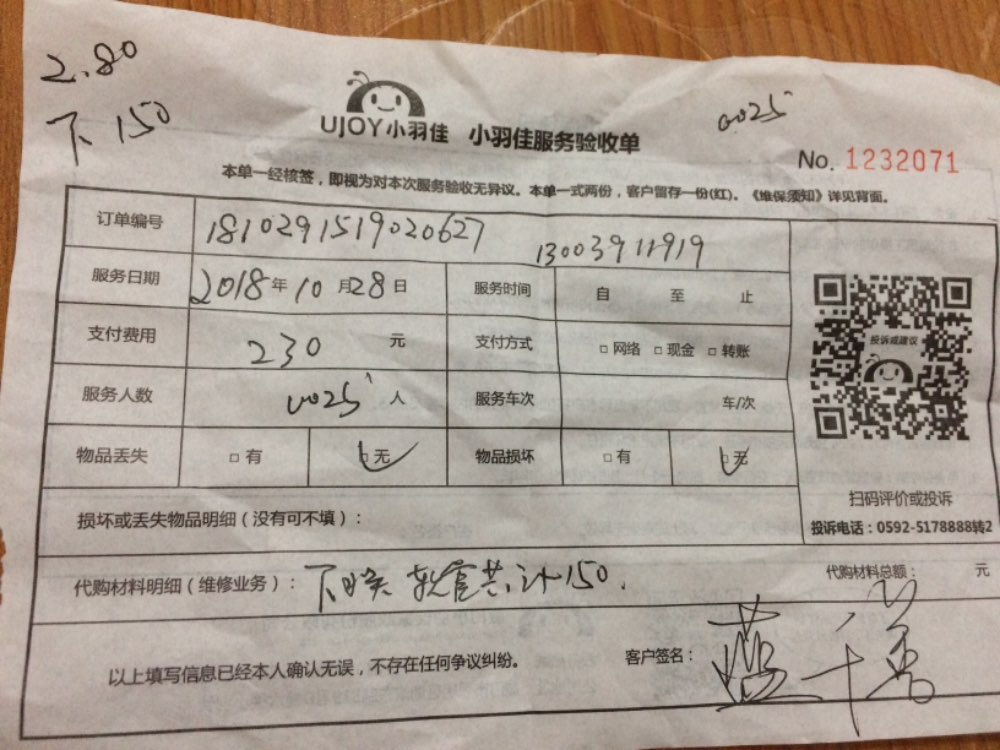 2.80
下 150
0025
UJOY小羽佳 小羽佳服务验收单
No. 1232071
本单一经核签，即视为对本次服务验收无异议。本单一式两份，客户留存一份(红)。《维保须知》详见背面。
订单编号 1810291519020627 13003911919
服务日期 2018年10月28日 服务时间 自 至 止
支付费用 230 元 支付方式 □网络 □现金 □转账
投诉或建议
服务人数 0025 人 服务车次 车/次
物品丢失 □有 □无 物品损坏 □有 □无
扫码评价或投诉
投诉电话：0592-5178888转2
损坏或丢失物品明细（没有可不填）：
代购材料明细（维修业务）： 下 软管共计150.
代购材料总额： 元
以上填写信息已经本人确认无误，不存在任何争议纠纷。 客户签名：